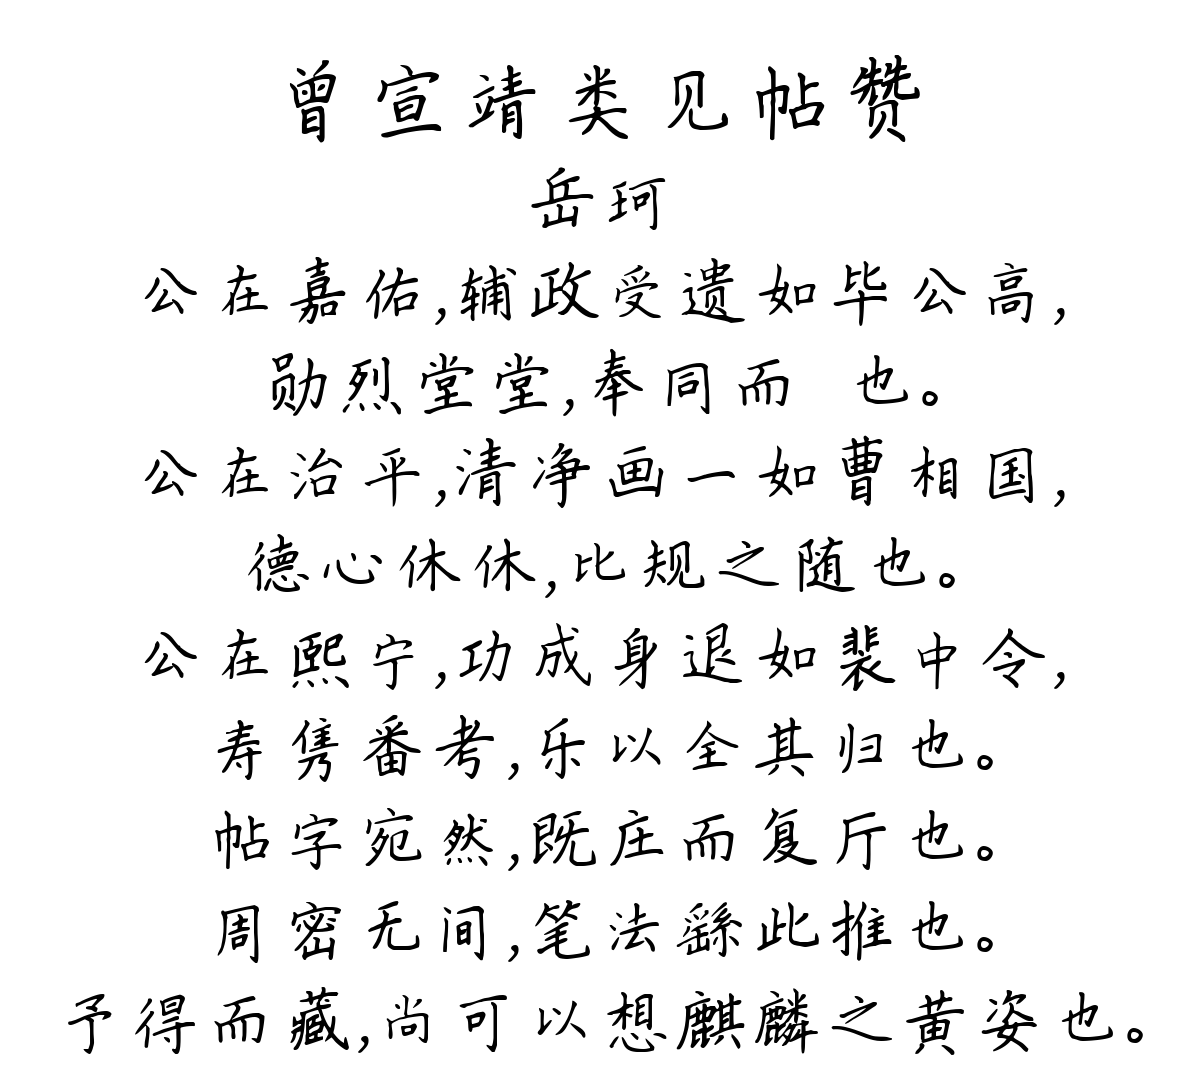 曾宣靖类见帖赞
岳珂
公在嘉佑,辅政受遗如毕公高,
勋烈堂堂,奉同而 也。
公在治平,清净画一如曹相国,
德心休休,比规之随也。
公在熙宁,功成身退如裴中令,
寿隽番考,乐以全其归也。
帖字宛然,既庄而复斤也。
周密无间,笔法繇此推也。
予得而藏,尚可以想麒麟之黄姿也。